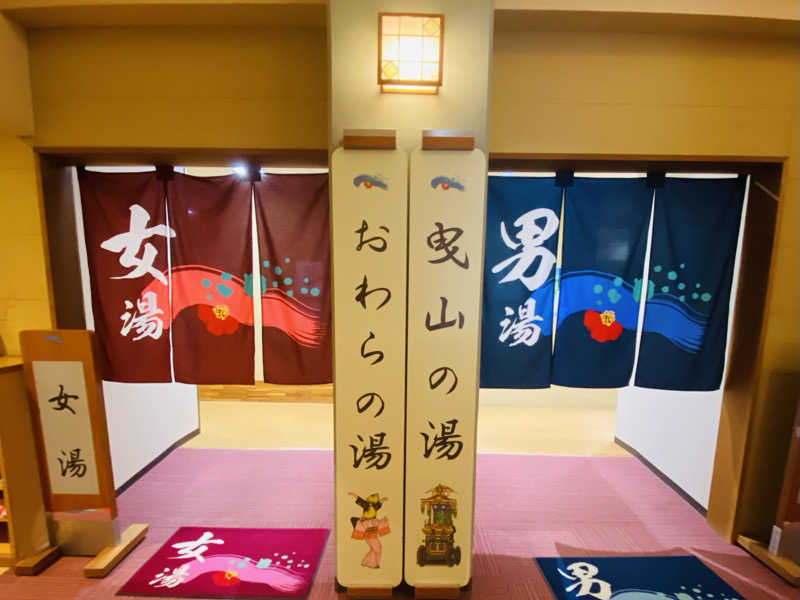 女湯
女湯
女湯
おわらの湯
曳山の湯
男湯
男